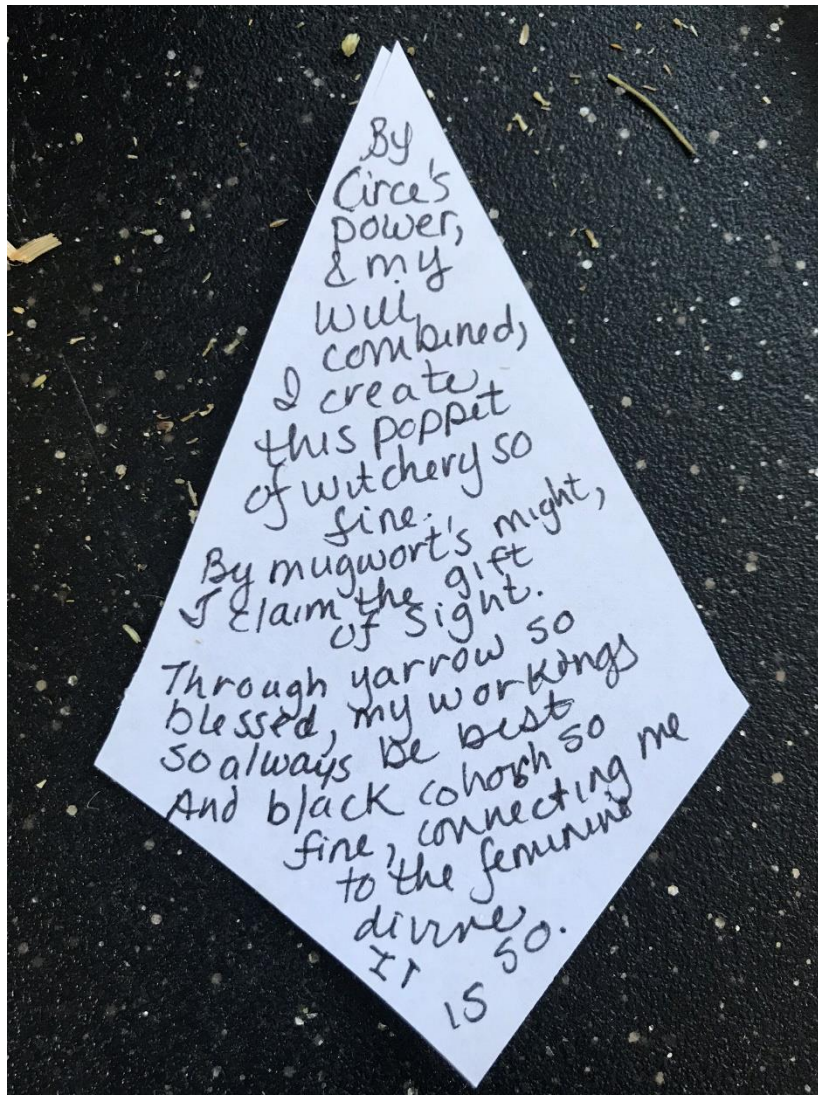 By
Circe's
power,
& my
will
combined,
I create
this poppet
of witchery so
fine.
By mugwort's might,
I claim the gift
of Sight.
Through yarrow so
blessed, my workings
so always be best
And black cohosh so
fine, connecting me
to the feminine
divine
It
is so.